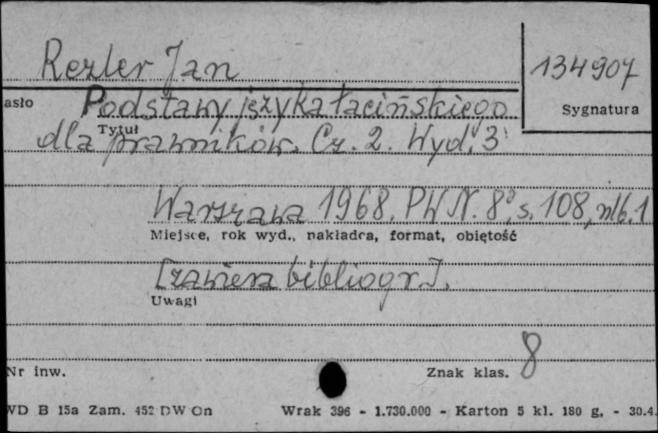 Rezler Jan
134907
asło
Podstawy języka łacińskiego
Sygnatura
Tytuł
dla prawników. Cz. 2. Wyd. 3
Warszawa 1968. PWN. 8°, s. 108, nlb. 1
Miejsce, rok wyd., nakładca, format, objętość
[zawiera bibliogr].
Uwagi
Nr inw.
Znak klas. 8
WD B 15a Zam. 452 DW Cn
Wrak 396 - 1.730.000 - Karton 5 kl. 180 g. - 30.4.